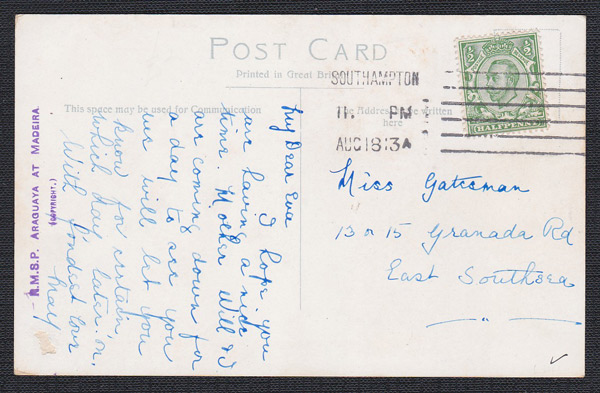 POST CARD
Printed in Great Bri
This space may be used for Communication
The Address to be written
here
SOUTHAMPTON
11. PM
AUG 18 13 A
HALFPENNY
My Dear Eva
I hope you
are having a nice
time. Mother Will & I
are coming down for
a day to see you
we will let you
know for certain
which day later on.
With fondest love
May
Miss Gateman
13 or 15 Granada Rd
East Southsea
R.M.S.P. ARAGUAYA AT MADEIRA.
(COPYRIGHT.)